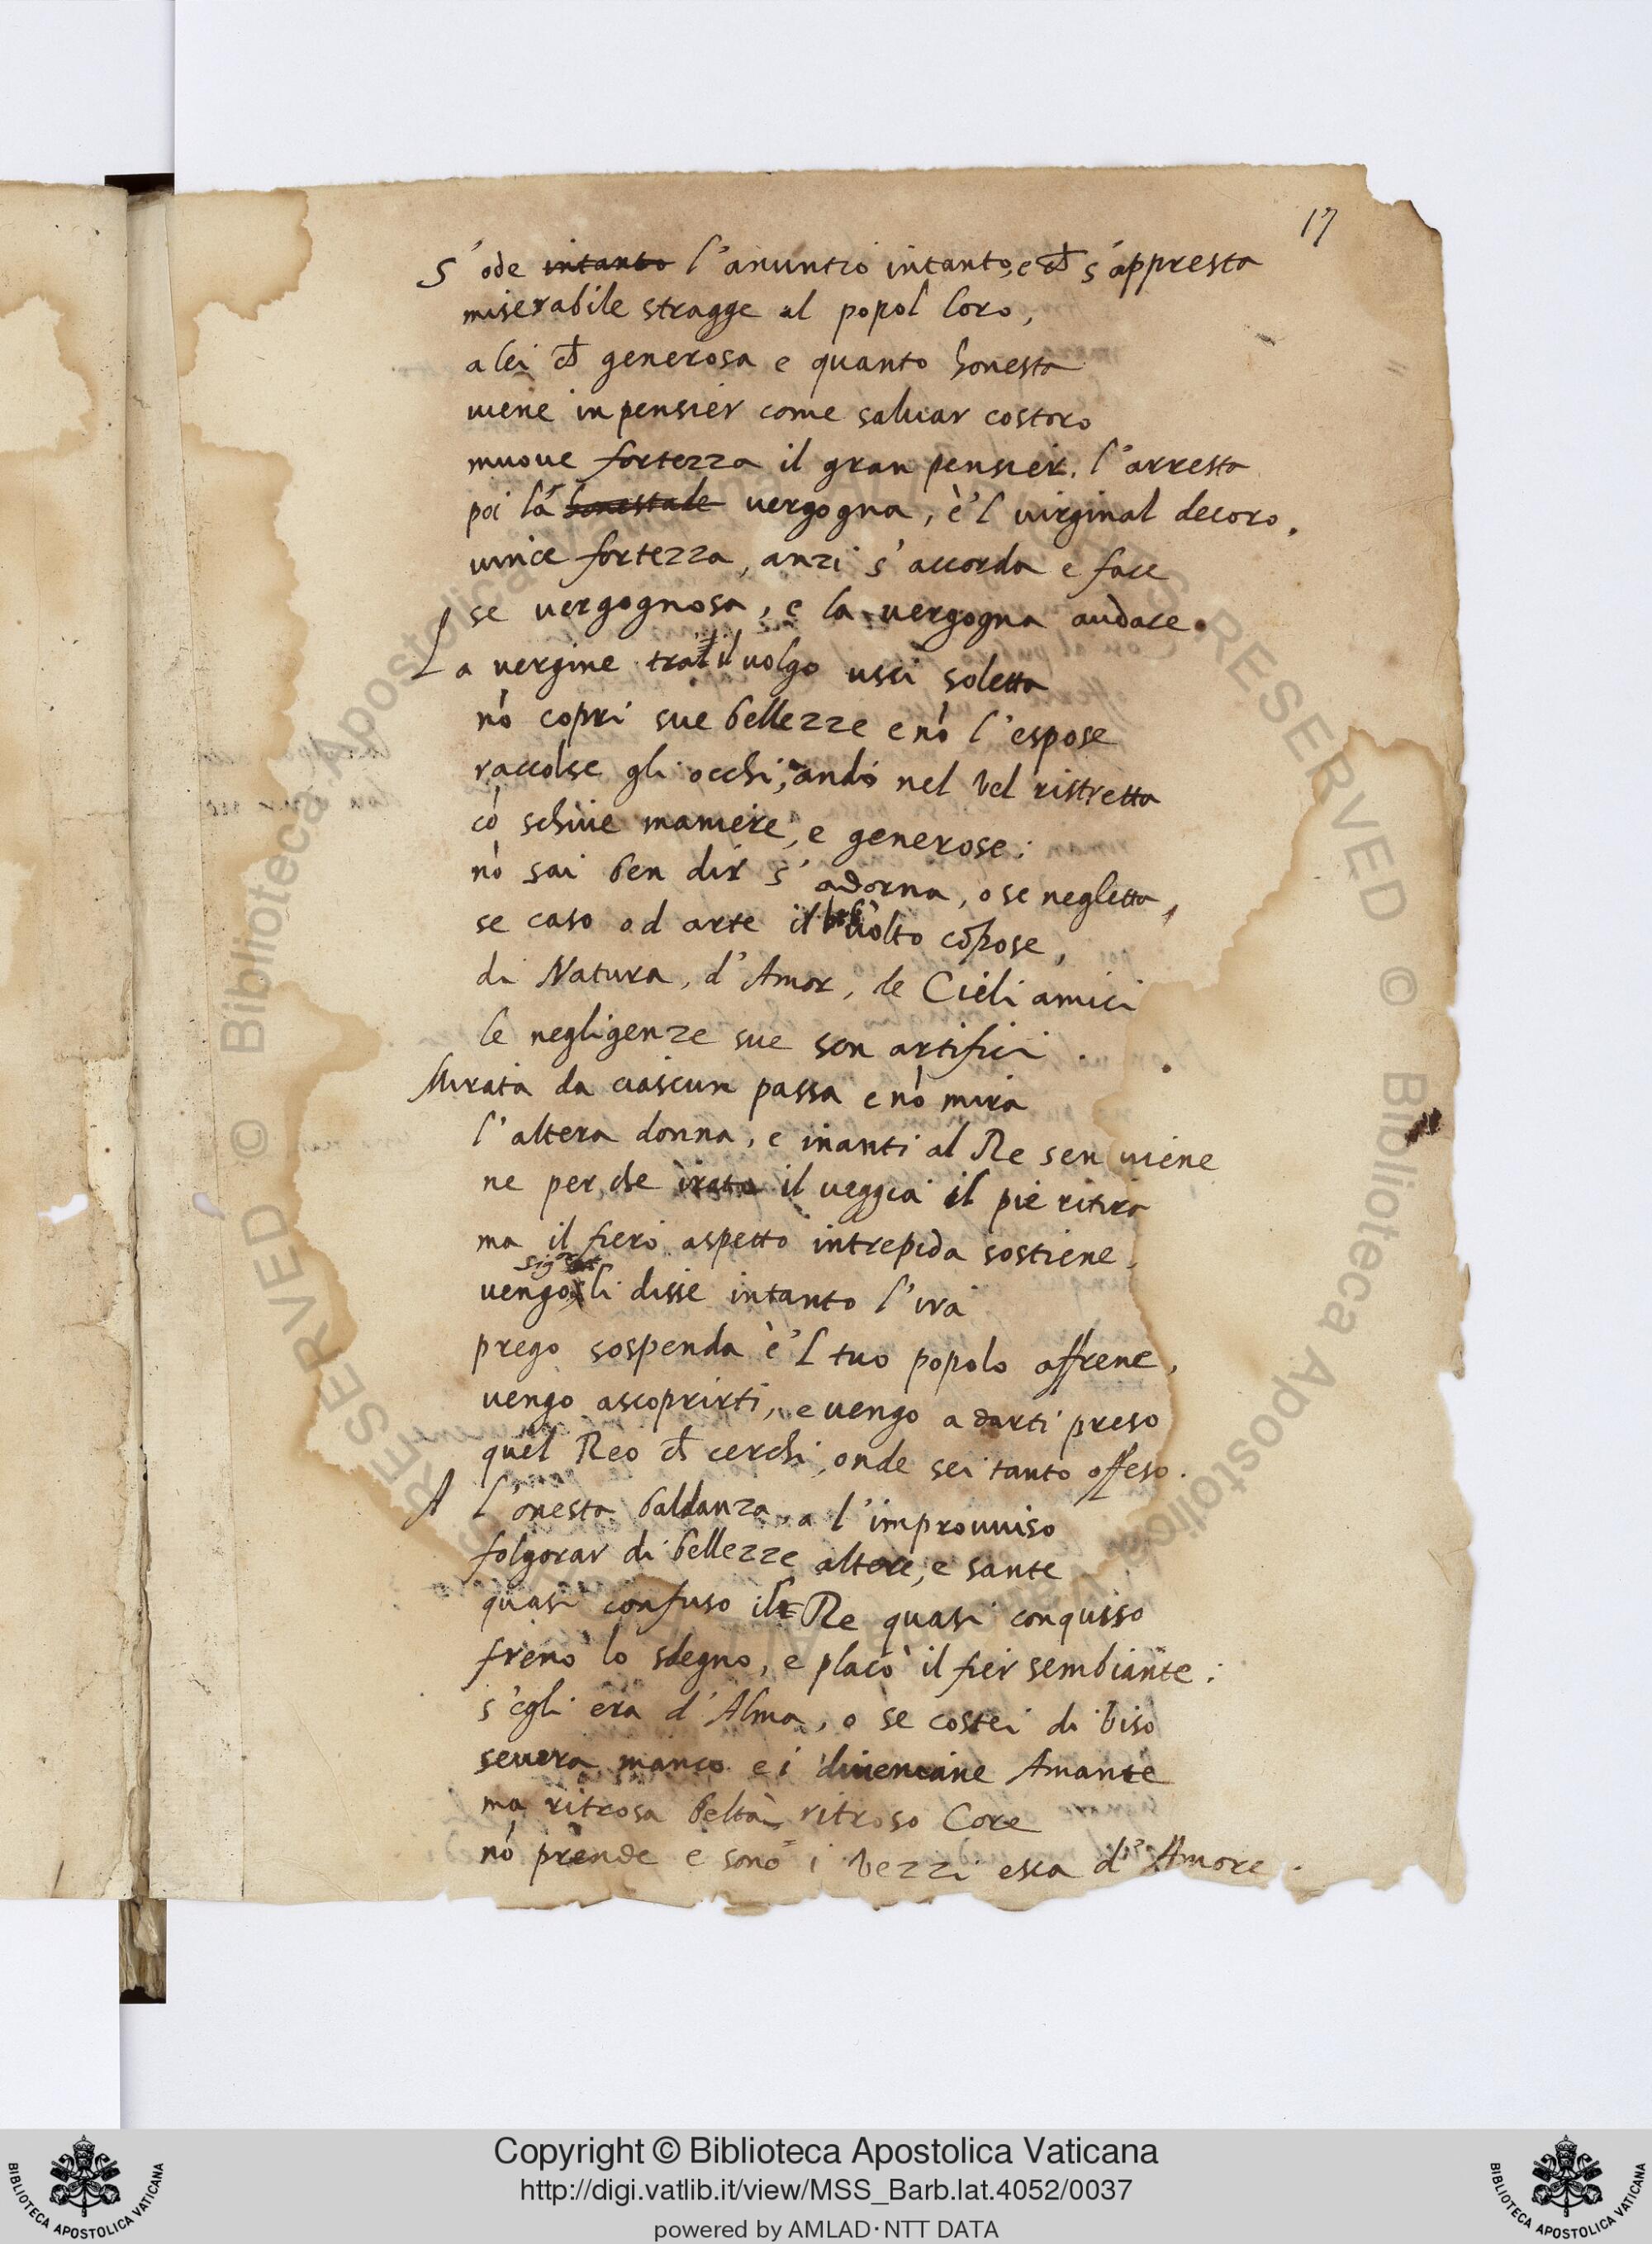 17
S'ode intanto l'anuntio intanto, e ch s'appresta
miserabile stragge al popol loro,
a lei ch generosa e quanto honesta
uiene in pensier come saluar costoro
muoue fortezza il gran pensier, l'arresta
poi la honestade vergogna, è'l uirginal decoro.
uince fortezza, anzi s'accorda e face
se vergognosa, e la vergogna audace.
La vergine tra'l uolgo usci soletta
nò copri sue bellezze e nò l'espose
raccolse gli occhi, andò nel vel ristretta
cò schiue maniere, e generose:
nò sai ben dir s'adorna, o se negletta,
se caso od arte il bel uolto cōpose,
di Natura, d'Amor, de Cieli amici
le negligenze sue son artifici.
Mirata da ciascun passa e nò mira
l'altera donna, e inanti al Re sen uiene
ne perche irato il ueggia il piè ritira
ma il fiero aspetto intrepida sostiene.
sig.r
uengo li disse intanto l'ira
prego sospenda è'l tuo popolo affrene,
uengo a scoprirti, e uengo a darti preso
quel Reo ch cerchi, onde sei tanto offeso.
A l'onesta baldanza, a l'improuuiso
folgorar di bellezze altere, e sante
quasi confuso il Re quasi conquiso
frenò lo sdegno, e placò il fier sembiante:
s'egli era d'Alma, o se costei di viso
seuera manco ei diueniane Amante
ma ritrosa beltà ritroso Core
nò prende e sono i vezzi esca d'Amore.
Copyright © Biblioteca Apostolica Vaticana
http://digi.vatlib.it/view/MSS_Barb.lat.4052/0037
powered by AMLAD·NTT DATA
BIBLIOTECA APOSTOLICA VATICANA
BIBLIOTECA APOSTOLICA VATICANA